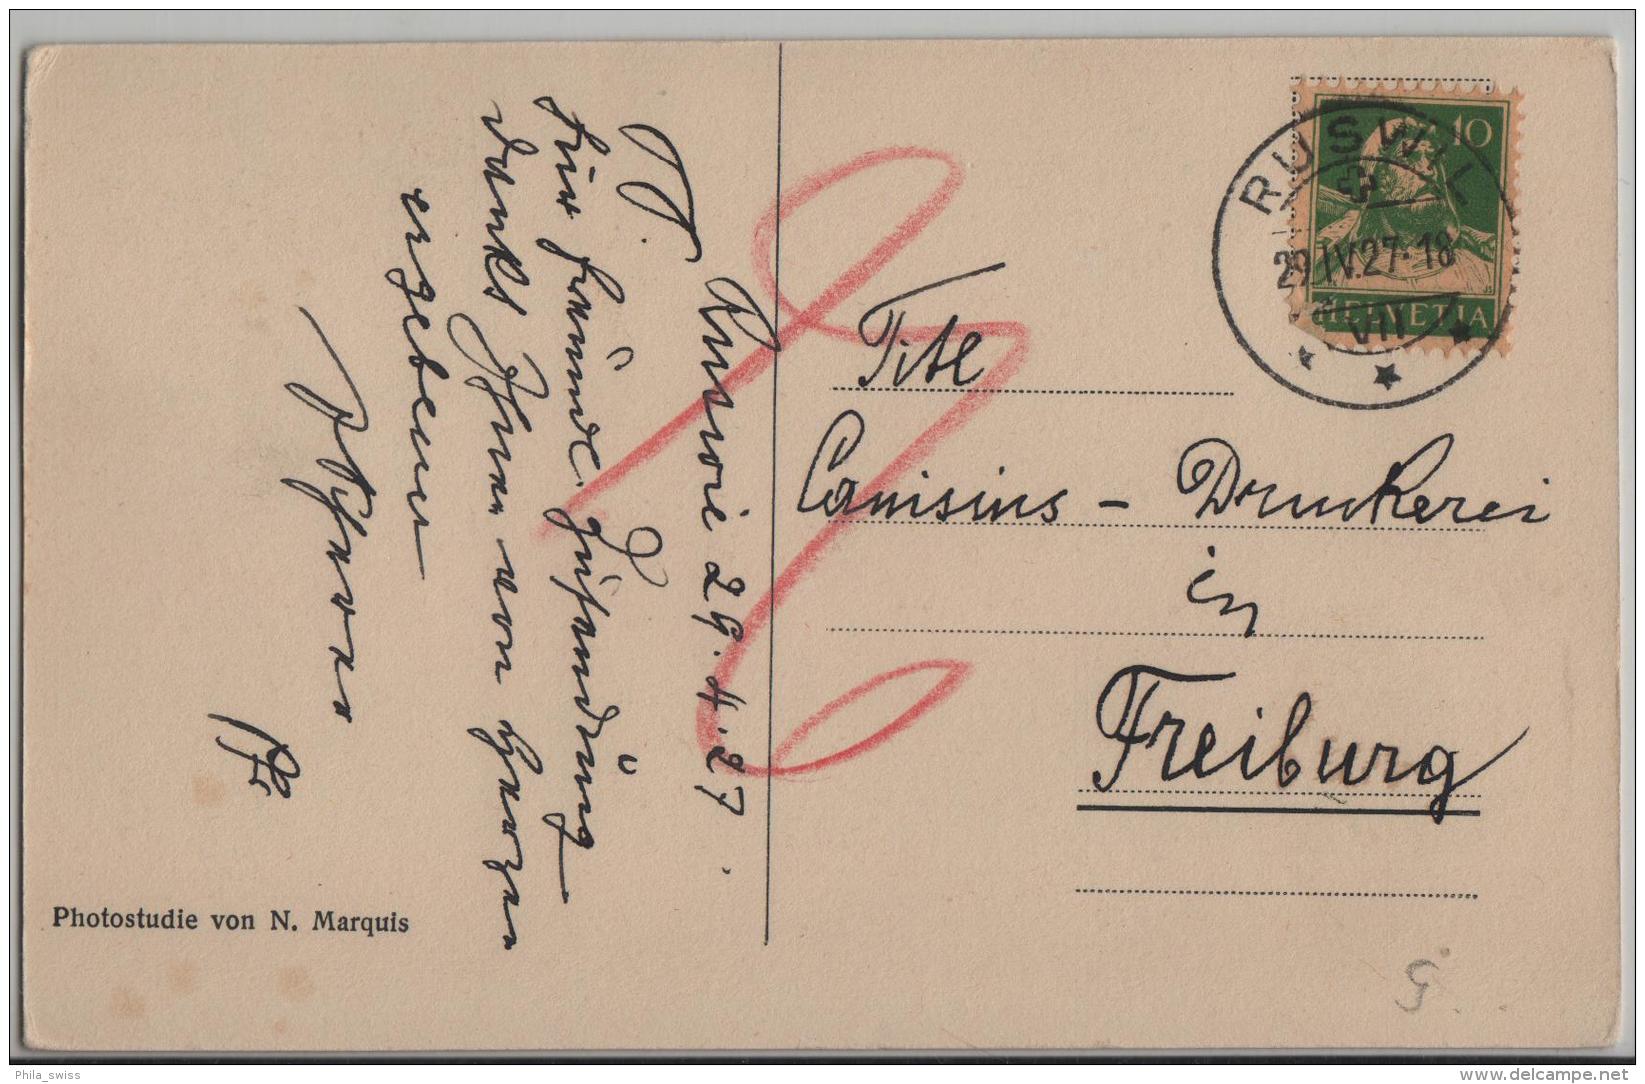 T. P.
Ruswil 29. 4. 27.
Für freundl. Zusendung
dankt Ihnen von Herzen
ergebenst
Pfarrer
Photostudie von N. Marquis
RUSWIL
29.IV.27-18
VII
10
HELVETIA
Titl
Canisius - Druckerei
in
Freiburg
Phila_swiss
delcampe.net